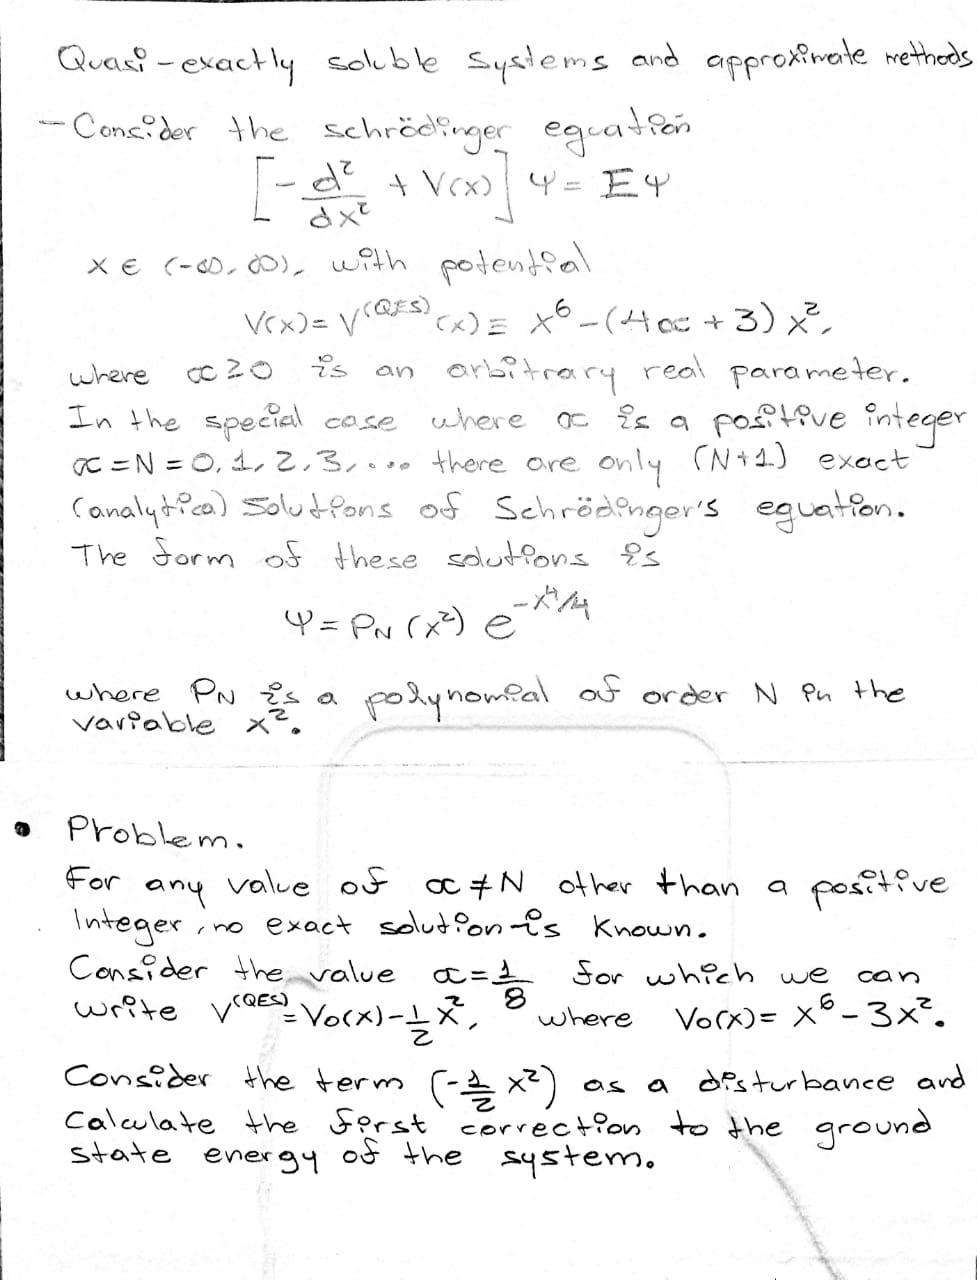 Quasi-exactly soluble systems and approximate methods
- Consider the schrödinger equation
[-d²/dx² + V(x)] Ψ = EΨ
x ∈ (-∞, ∞), with potential
V(x) = V^(QES)(x) ≡ x⁶ - (4α + 3) x²,
where α ≥ 0 is an arbitrary real parameter.
In the special case where α is a positive integer
α = N = 0, 1, 2, 3, ... there are only (N+1) exact
(analytical) solutions of Schrödinger's equation.
The form of these solutions is
Ψ = P_N (x²) e^(-x⁴/4)
where P_N is a polynomial of order N in the
variable x².
• Problem.
For any value of α ≠ N other than a positive
Integer, no exact solution is known.
Consider the value α = 1/8 for which we can
write V^(QES) = V₀(x) - 1/2 x², where V₀(x) = x⁶ - 3x².
Consider the term (-1/2 x²) as a disturbance and
Calculate the first correction to the ground
state energy of the system.